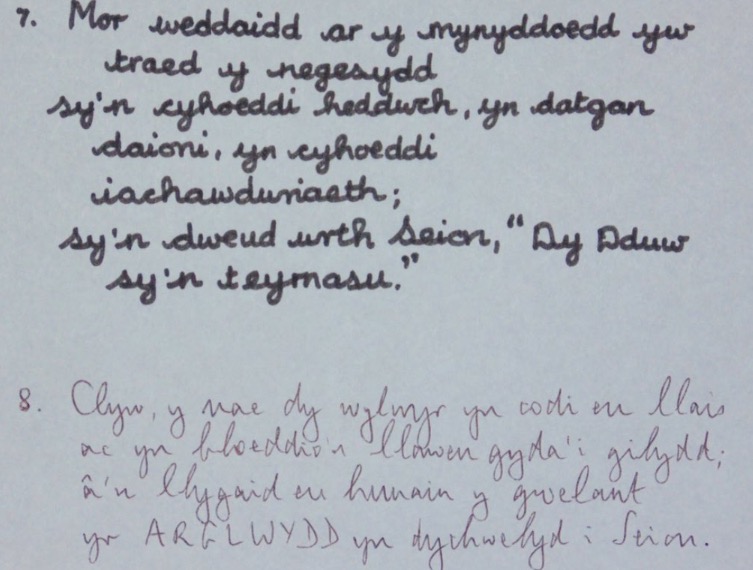 7. Mor weddaidd ar y mynyddoedd yw
traed y negesydd
sy'n cyhoeddi heddwch, yn datgan
daioni, yn cyhoeddi
iachawdwriaeth;
sy'n dweud wrth Seion, “Dy Dduw
sy'n teyrnasu.”
8. Clyw, y mae dy wylwyr yn codi eu llais
ac yn bloeddio'n llawen gyda'i gilydd;
â'u llygaid eu hunain y gwelant
yr ARGLWYDD yn dychwelyd i Seion.